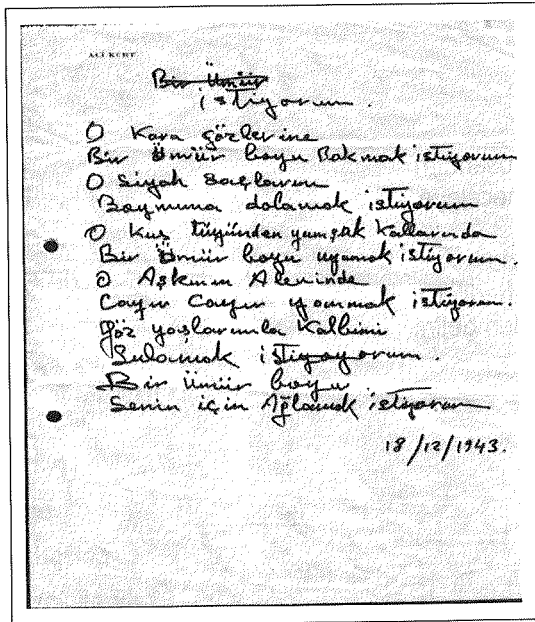 ALİ KURT
Bir Ömür
istiyorum.
O Kara gözlerine
Bir Ömür boyu Bakmak istiyorum
O Siyah Saçlarını
Boynuma dolamak istiyorum
O Kuş tüyünden yumşak Kollarında
Bir Ömür boyu uyumak istiyorum.
O Aşkının Alevinde
Cayır Cayır yanmak istiyorum.
Göz yaşlarımla Kalbimi
Sulamak istiyoyorum.
Bir ömür boyu
Senin için Ağlamak istiyorum
18/12/1943.